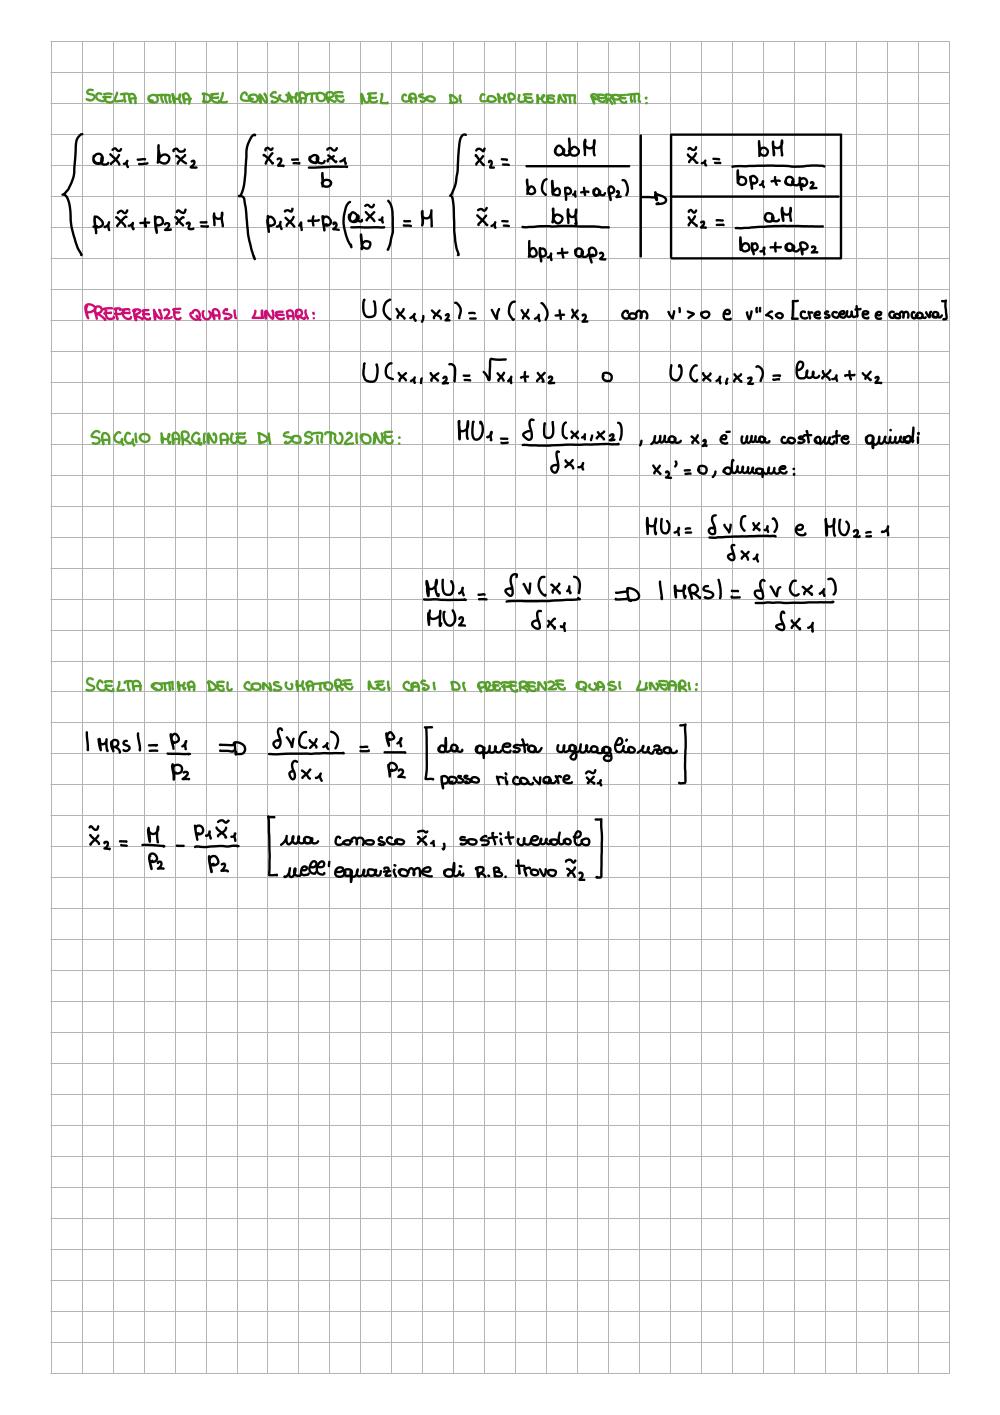 SCELTA OTTIMA DEL CONSUMATORE NEL CASO DI COMPLEMENTI PERFETTI:
{ ax̃₁ = bx̃₂ { x̃₂ = ax̃₁/b { x̃₂ = abM/b(bp₁+ap₂) → x̃₁ = bM/bp₁+ap₂
p₁x̃₁+p₂x̃₂=M p₁x̃₁+p₂(ax̃₁/b) = M x̃₁ = bM/bp₁+ap₂ x̃₂ = aM/bp₁+ap₂
PREFERENZE QUASI LINEARI: U(x₁,x₂) = v(x₁)+x₂ con v'>0 e v''<0 [crescente e concava]
U(x₁,x₂) = √x₁ + x₂ o U(x₁,x₂) = lnx₁ + x₂
SAGGIO MARGINALE DI SOSTITUZIONE: MU₁ = δU(x₁,x₂)/δx₁ , ma x₂ è una costante quindi
x₂' = 0, dunque:
MU₁ = δv(x₁)/δx₁ e MU₂ = 1
MU₁/MU₂ = δv(x₁)/δx₁ ⇒ |MRS| = δv(x₁)/δx₁
SCELTA OTTIMA DEL CONSUMATORE NEI CASI DI PREFERENZE QUASI LINEARI:
|MRS| = p₁/p₂ ⇒ δv(x₁)/δx₁ = p₁/p₂ [da questa uguaglianza
posso ricavare x̃₁]
x̃₂ = M/p₂ - p₁x̃₁/p₂ [ma conosco x̃₁, sostituendolo
nell'equazione di R.B. trovo x̃₂]